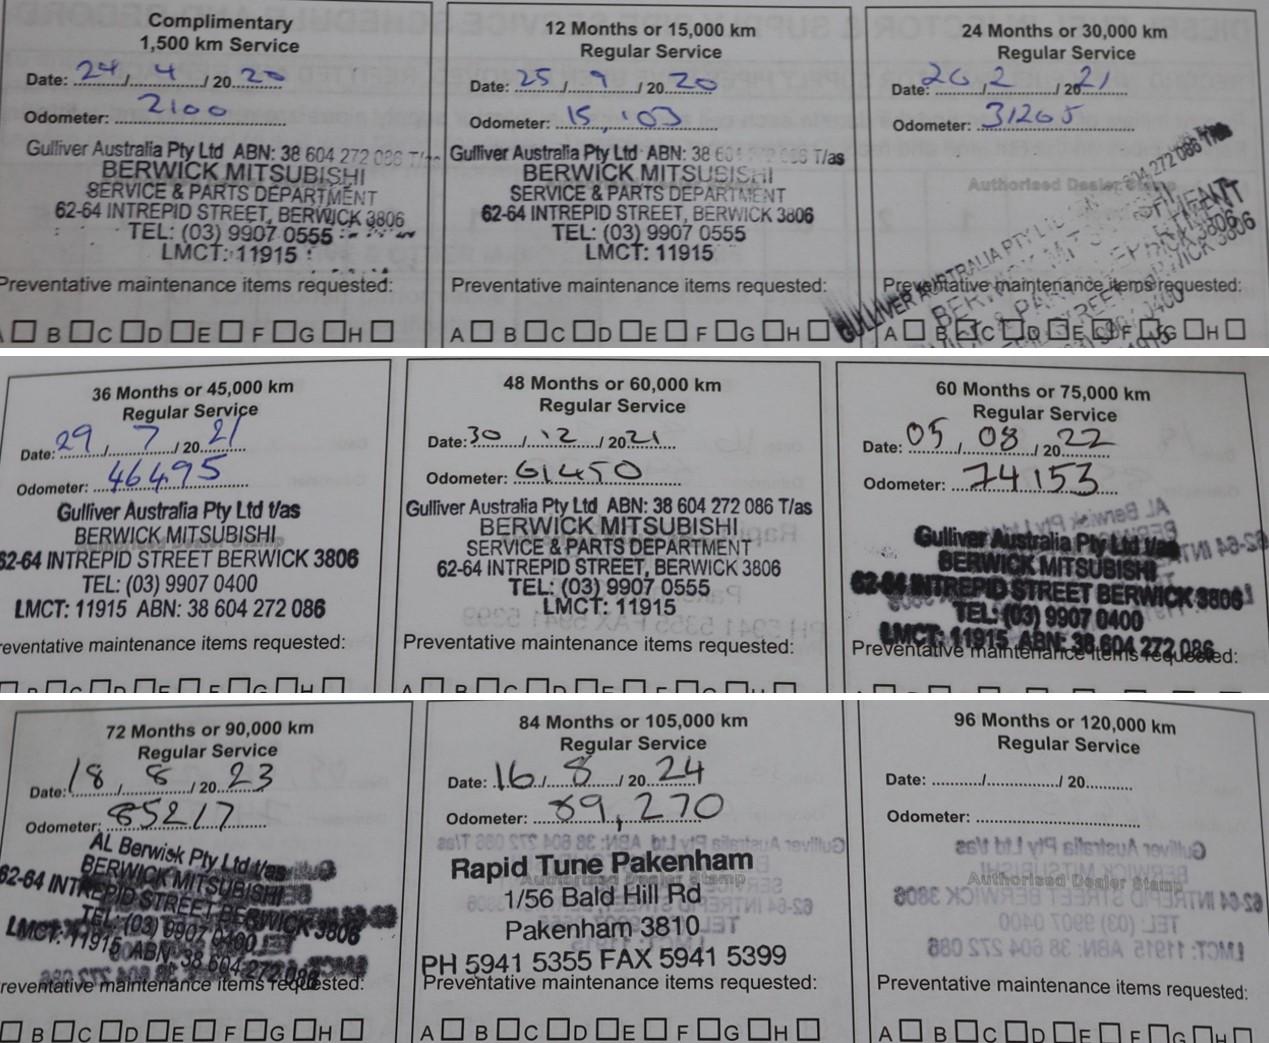 Complimentary
1,500 km Service
Date: 24 / 4 / 20 20
Odometer: 2100
Gulliver Australia Pty Ltd ABN: 38 604 272 086 T/as
BERWICK MITSUBISHI
SERVICE & PARTS DEPARTMENT
62-64 INTREPID STREET, BERWICK 3806
TEL: (03) 9907 0555
LMCT: 11915
Preventative maintenance items requested:
A B C D E F G H
12 Months or 15,000 km
Regular Service
Date: 25 / 9 / 20 20
Odometer: 15,103
Gulliver Australia Pty Ltd ABN: 38 604 272 086 T/as
BERWICK MITSUBISHI
SERVICE & PARTS DEPARTMENT
62-64 INTREPID STREET, BERWICK 3806
TEL: (03) 9907 0555
LMCT: 11915
Preventative maintenance items requested:
A B C D E F G H
24 Months or 30,000 km
Regular Service
Date: 26 / 2 / 20 21
Odometer: 31265
Authorised Dealer Stamp
GULLIVER AUSTRALIA PTY LTD 604 272 086 T/as
Preventative maintenance items requested:
A B C D E F G H
36 Months or 45,000 km
Regular Service
Date: 29 / 7 / 20 21
Odometer: 46495
Gulliver Australia Pty Ltd t/as
BERWICK MITSUBISHI
62-64 INTREPID STREET BERWICK 3806
TEL: (03) 9907 0400
LMCT: 11915 ABN: 38 604 272 086
reventative maintenance items requested:
48 Months or 60,000 km
Regular Service
Date: 30 / 12 / 20 21
Odometer: 61450
Gulliver Australia Pty Ltd ABN: 38 604 272 086 T/as
BERWICK MITSUBISHI
SERVICE & PARTS DEPARTMENT
62-64 INTREPID STREET, BERWICK 3806
TEL: (03) 9907 0555
LMCT: 11915
Preventative maintenance items requested:
60 Months or 75,000 km
Regular Service
Date: 05 / 08 / 20 22
Odometer: 74153
Gulliver Australia Pty Ltd t/as
BERWICK MITSUBISHI
62-64 INTREPID STREET BERWICK 3806
TEL: (03) 9907 0400
LMCT: 11915 ABN: 38 604 272 086
Preventative maintenance items requested:
72 Months or 90,000 km
Regular Service
Date: 18 / 8 / 20 23
Odometer: 85217
AL Berwick Pty Ltd t/as
BERWICK MITSUBISHI
62-64 INTREPID STREET BERWICK 3806
TEL: (03) 9907 0400
LMCT: 11915 ABN: 38 604 272 086
reventative maintenance items requested:
B C D E F G H
84 Months or 105,000 km
Regular Service
Date: 16 / 8 / 20 24
Odometer: 89,270
Rapid Tune Pakenham
1/56 Bald Hill Rd
Pakenham 3810
PH 5941 5355 FAX 5941 5399
Preventative maintenance items requested:
A B C D E F G H
96 Months or 120,000 km
Regular Service
Date: / / 20
Odometer:
Authorised Dealer Stamp
Preventative maintenance items requested:
A B C D E F G H